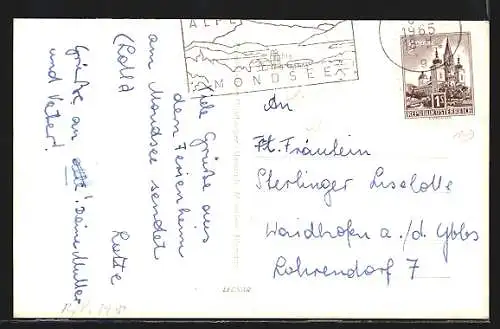 ALPE
MONDSEE
1965
1S
REPUBLIK ÖSTERREICH
Viele Grüße aus
dem Ferienheim
am Mondsee sendet
Lotte
(Lotta)
Grüße an alle! Deine Mutter
und Vater!
An
Frl. Fräulein
Sterlinger Liselotte
Waidhofen a./d Ybbs
Lohrendorf 7